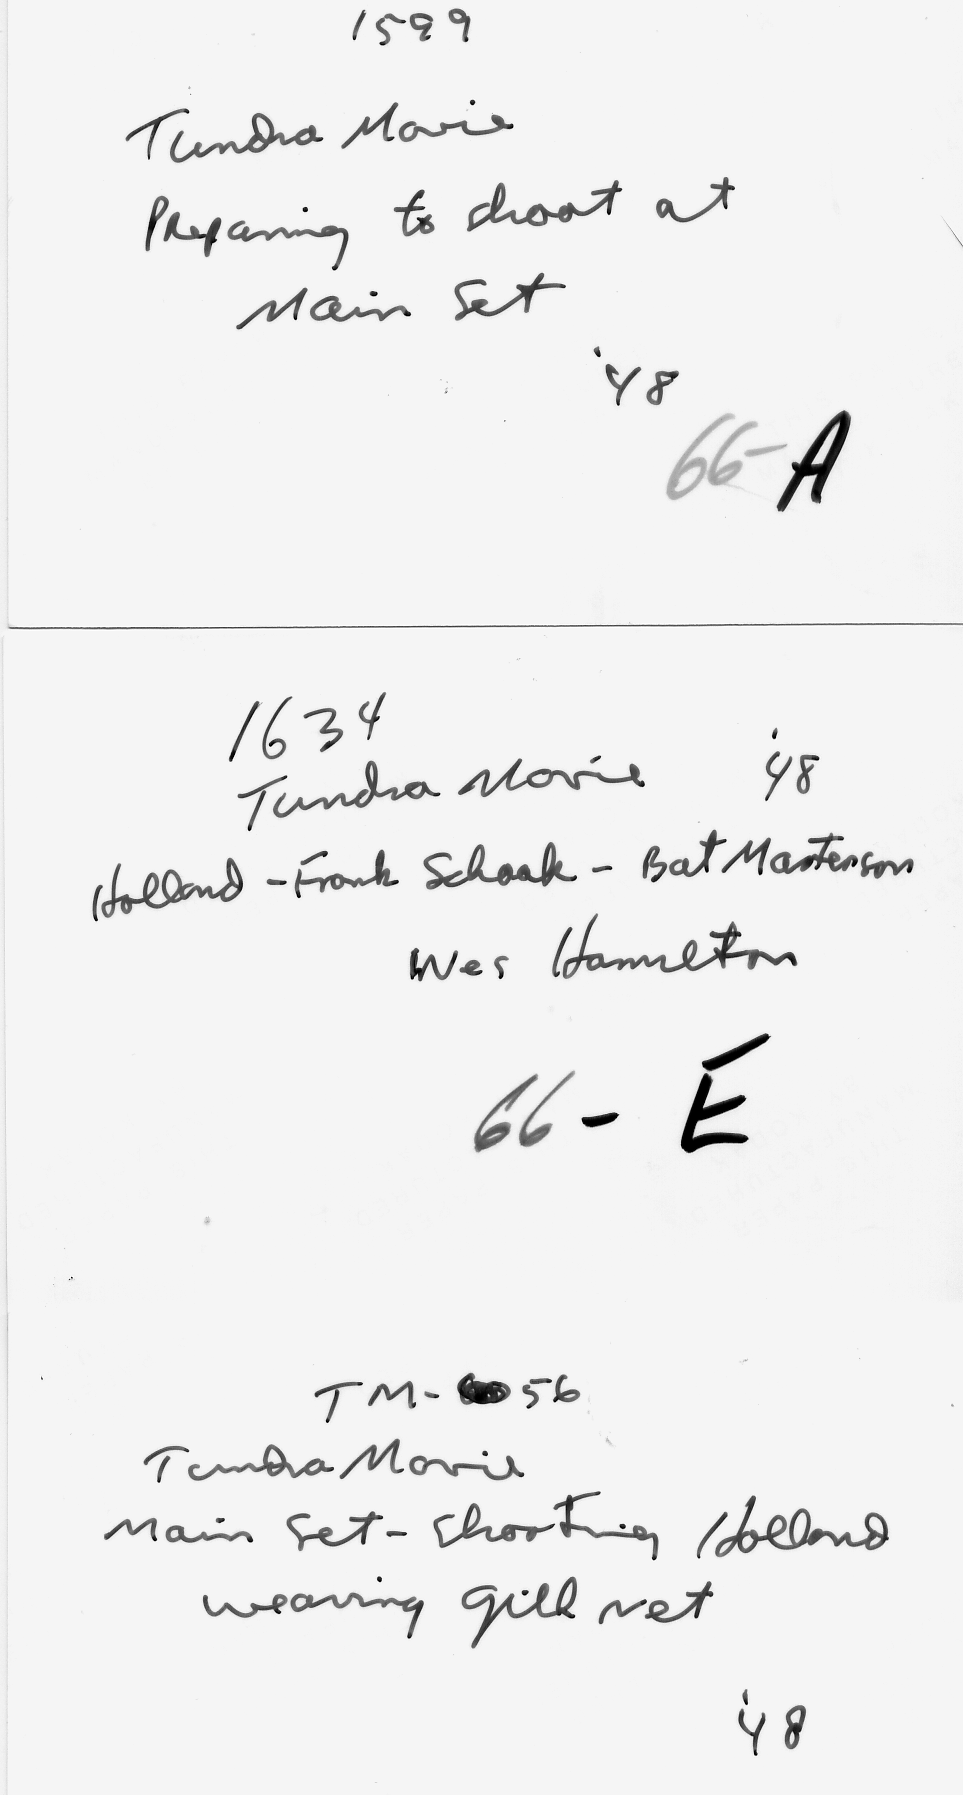 1599
Tundra Movie
Preparing to shoot at
Main Set
'48
66-A
1634
Tundra Movie '48
Holland - Frank Schaak - Bat Masterson
Wes Hamilton
66 - E
TM- 56
Tundra Movie
Main Set - Shooting Holland
weaving gill net
'48